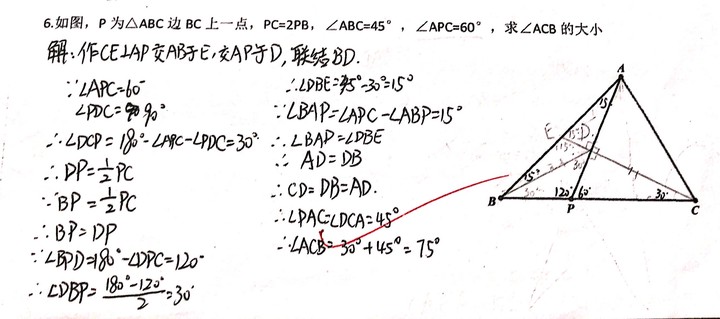 6.如图，P 为△ABC 边 BC 上一点，PC=2PB，∠ABC=45°，∠APC=60°，求∠ACB 的大小
解:作CE⊥AP交AB于E,交AP于D,联结BD.
∵∠APC=60°
∠PDC=90°
∴∠DCP=180°-∠APC-∠PDC=30°
∴DP=½PC
∵BP=½PC
∴BP=DP
∵∠BPD=180°-∠DPC=120°
∴∠DBP=(180°-120°)/2=30°
∴∠DBE=45°-30°=15°
∵∠BAP=∠APC-∠ABP=15°
∴∠BAP=∠DBE
∴AD=DB
∴CD=DB=AD.
∴∠PAC=∠DCA=45°
∴∠ACB=30°+45°=75°
A
15°
E
D
15°
30°
30°
120°
60°
30°
B
P
C